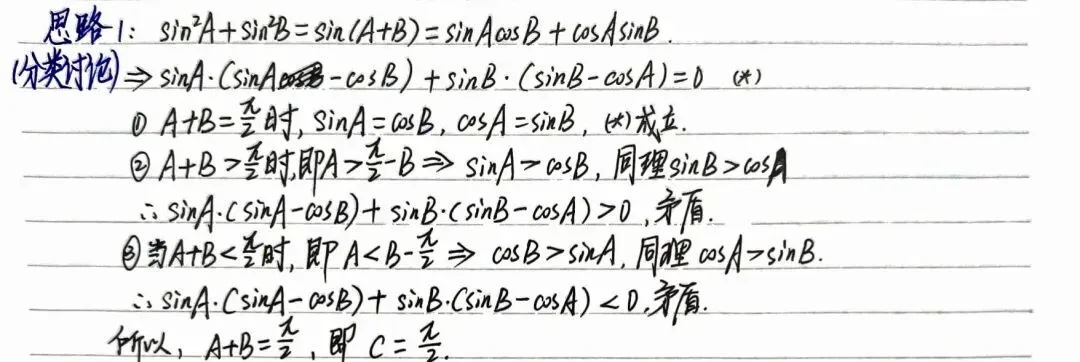 思路1: sin²A+sin²B=sin(A+B)=sinAcosB+cosAsinB.
(分类讨论)⇒sinA·(sinA-cosB)+sinB·(sinB-cosA)=0 (*)
① A+B=π/2时, sinA=cosB, cosA=sinB, (*)成立.
② A+B>π/2时,即A>π/2-B ⇒ sinA>cosB, 同理sinB>cosA
∴ sinA·(sinA-cosB)+sinB·(sinB-cosA)>0,矛盾.
③当A+B<π/2时, 即A<B-π/2 ⇒ cosB>sinA, 同理 cosA>sinB.
∴ sinA·(sinA-cosB)+sinB·(sinB-cosA)<0,矛盾.
所以, A+B=π/2, 即 C=π/2.